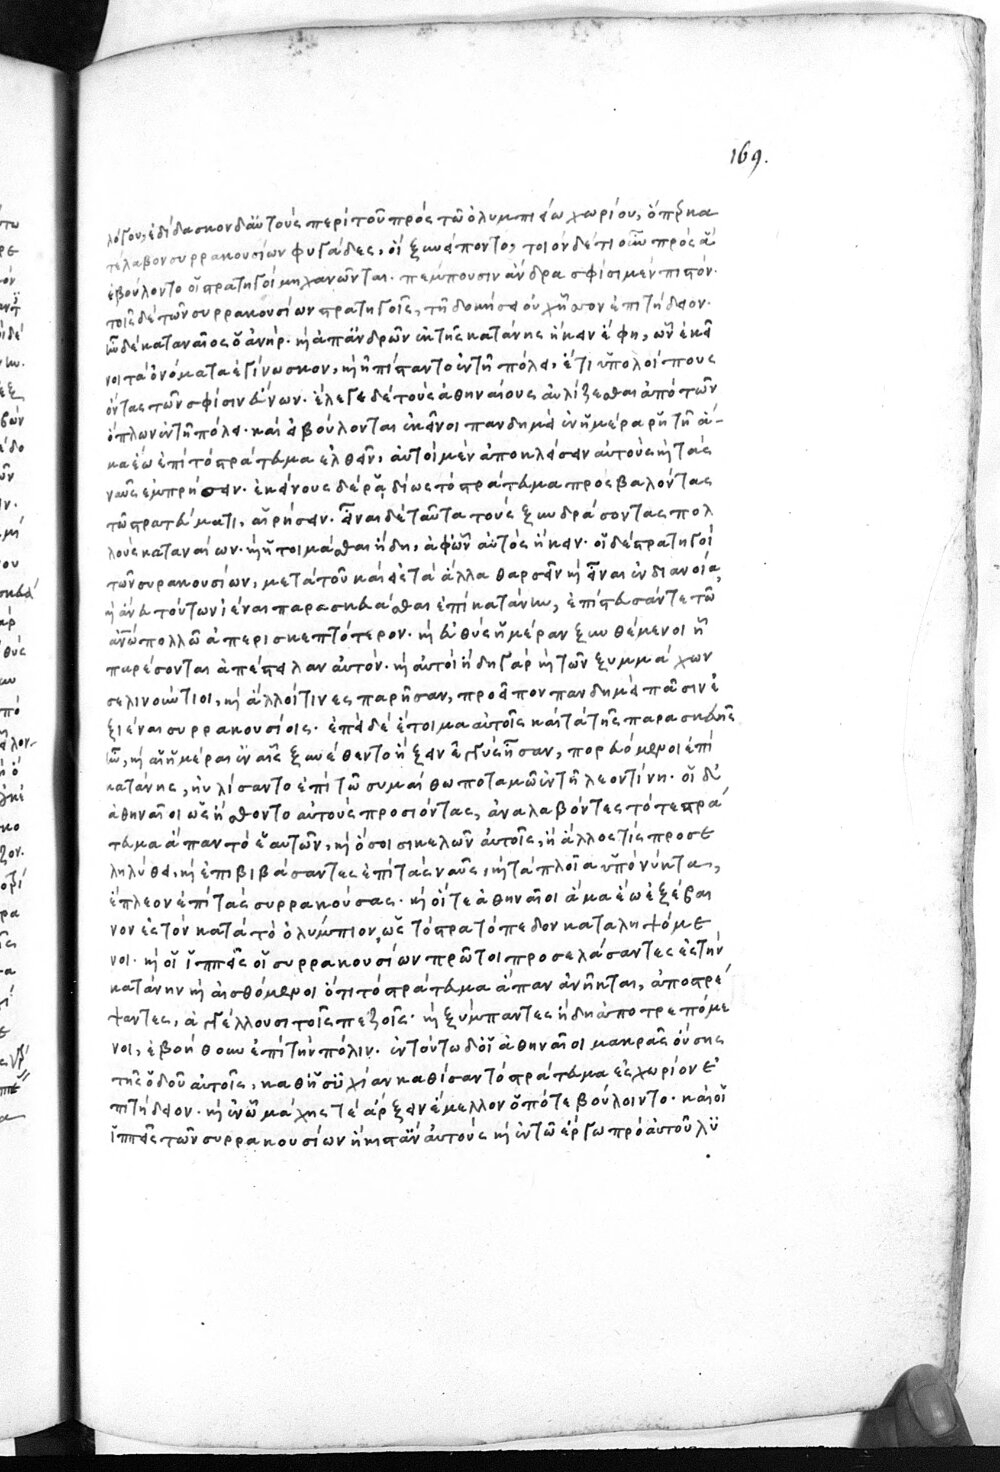 169.
λόγου, ἐδίδασκον δ' αὐτοὺς περὶ τοῦ πρὸς τῷ ὀλυμπιείω χωρίου, ὅπερ κα
τέλαβον συρρακουσίων φυγάδες, οἳ ξυνείποντο, τοιόνδέ τι οὖν πρὸς ἃ
ἐβούλοντο οἱ στρατηγοὶ μηχανῶνται. πέμπουσιν ἄνδρα σφίσι μὲν πιστόν.
τοῖς δὲ τῶν συρρακουσίων στρατηγοῖς, τῇ δοκήσει οὐχ ἧσσον ἐπιτήδειον.
ἦν δὲ καταναῖος ὁ ἀνήρ. καὶ ἀπ' ἀνδρῶν ἐκ τῆς κατάνης ἥκειν ἔφη, ὧν ἐκεῖ
νοι τὰ ὀνόματα ἐγίνωσκον, καὶ ἠπίσταντο ἐν τῇ πόλει, ἔτι ὑπολοίπους
ὄντας τῶν σφίσιν εὔνων. ἔλεγε δὲ τοὺς ἀθηναίους αὐλίζεσθαι ἀπὸ τῶν
ὅπλων ἐν τῇ πόλει. καὶ εἰ βούλονται ἐκεῖνοι πανδημεὶ ἐν ἡμέρα ῥητῇ ἅ-
μα ἕω ἐπὶ τὸ στράτευμα ἐλθεῖν, αὐτοὶ μὲν ἀποκλείσειν αὐτοὺς καὶ τὰς
ναῦς ἐμπρήσειν. ἐκείνους δὲ ῥᾳδίως τὸ στράτευμα προσβαλόντας
τῷ σταυρώματι, αἱρήσειν. εἶναι δὲ ταῦτα τοὺς ξυνδράσοντας πολ
λοὺς καταναίων. καὶ ἡτοιμάσθαι ἤδη, ἀφ' ὧν αὐτὸς ἥκειν. οἱ δὲ στρατηγοὶ
τῶν συρακουσίων, μετὰ τοῦ καὶ ἐς τὰ ἄλλα θαρσεῖν καὶ εἶναι ἐν διανοίᾳ
καὶ ἄνευ τούτων ἰέναι παρασκευάσθαι ἐπὶ κατάνην, ἐπίστευσάν τε τῷ
ἀνθρώπω πολλῷ ἀπερισκεπτότερον. καὶ εὐθὺς ἡμέραν ξυνθέμενοι ᾗ
παρέσονται ἀπέστειλαν αὐτόν. καὶ αὐτοὶ ἤδη γὰρ καὶ τῶν ξυμμάχων
σελινούντιοι, καὶ ἄλλοι τινες παρῆσαν, προεῖπον πανδημεὶ πᾶσιν ἐ
ξιέναι συρρακουσίοις. ἐπεὶ δὲ ἕτοιμα αὐτοῖς καὶ τὰ τῆς παρασκευῆς
ἦν, καὶ αἱ ἡμέραι ἐν αἷς ξυνέθεντο ἥξειν ἐγγὺς ἦσαν, πορευόμενοι ἐπὶ
κατάνης, ηὐλίσαντο ἐπὶ τῷ συμαίθω ποταμῷ ἐν τῇ λεοντίνῃ. οἱ δ'
ἀθηναῖοι ὡς ᾔσθοντο αὐτοὺς προσιόντας, ἀναλαβόντες τό τε στρά
τευμα ἅπαν τὸ ἑαυτῶν, καὶ ὅσοι σικελῶν αὐτοῖς, ἢ ἄλλος τις προσε
ληλύθει, καὶ ἐπιβιβάσαντες ἐπὶ τὰς ναῦς, καὶ τὰ πλοῖα ὑπὸ νύκτα,
ἔπλεον ἐπὶ τὰς συρρακούσας. καὶ οἵ τε ἀθηναῖοι ἅμα ἕω ἐξέβαι
νον ἐς τὸν κατὰ τὸ ὀλύμπιον, ὡς τὸ στρατόπεδον καταληψόμε
νοι. καὶ οἱ ἱππεῖς οἱ συρρακουσίων πρῶτοι προσελάσαντες ἐς τὴν
κατάνην καὶ αἰσθόμενοι ὅτι τὸ στράτευμα ἅπαν ἀνῆκται, ἀποστρέ
ψαντες, ἀγγέλλουσι τοῖς πεζοῖς. καὶ ξύμπαντες ἤδη ἀποτρεπόμε
νοι, ἐβοήθουν ἐπὶ τὴν πόλιν. ἐν τούτω δ' οἱ ἀθηναῖοι μακρᾶς οὔσης
τῆς ὁδοῦ αὐτοῖς, καθ' ἡσυχίαν καθίσαν τὸ στράτευμα ἐς χωρίον ἐ
πιτήδειον. καὶ ἐν ᾧ μάχης τε ἄρξειν ἔμελλον ὁπότε βούλοιντο. καὶ οἱ
ἱππεῖς τῶν συρρακουσίων ἥκιστ' ἂν αὐτοὺς καὶ ἐν τῷ ἔργω πρὸ αὐτοῦ λυ